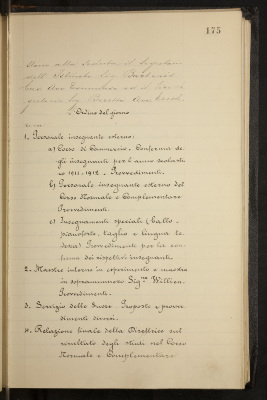 175
Ordine del giorno
1. Personale insegnante esterno:
a) Corso di Commercio. Conferma de
gli insegnanti per l'anno scolasti
co 1911-1912. Provvedimenti.
b) Personale insegnante esterno del
Corso Normale e Complementare
Provvedimenti.
c) Insegnamenti speciali (ballo-
pianoforte, taglio e lingua te
desca) Provvedimenti per la con
ferma dei rispettivi insegnanti.
2. Maestre interne in esperimento e maestra
in soprannumero Sig.na Willien.
Provvedimenti.
3. Servizio delle Suore. Proposte e provve
dimenti diversi.
4. Relazione finale della Direttrice sul
risultato degli studi nel Corso
Normale e Complementare